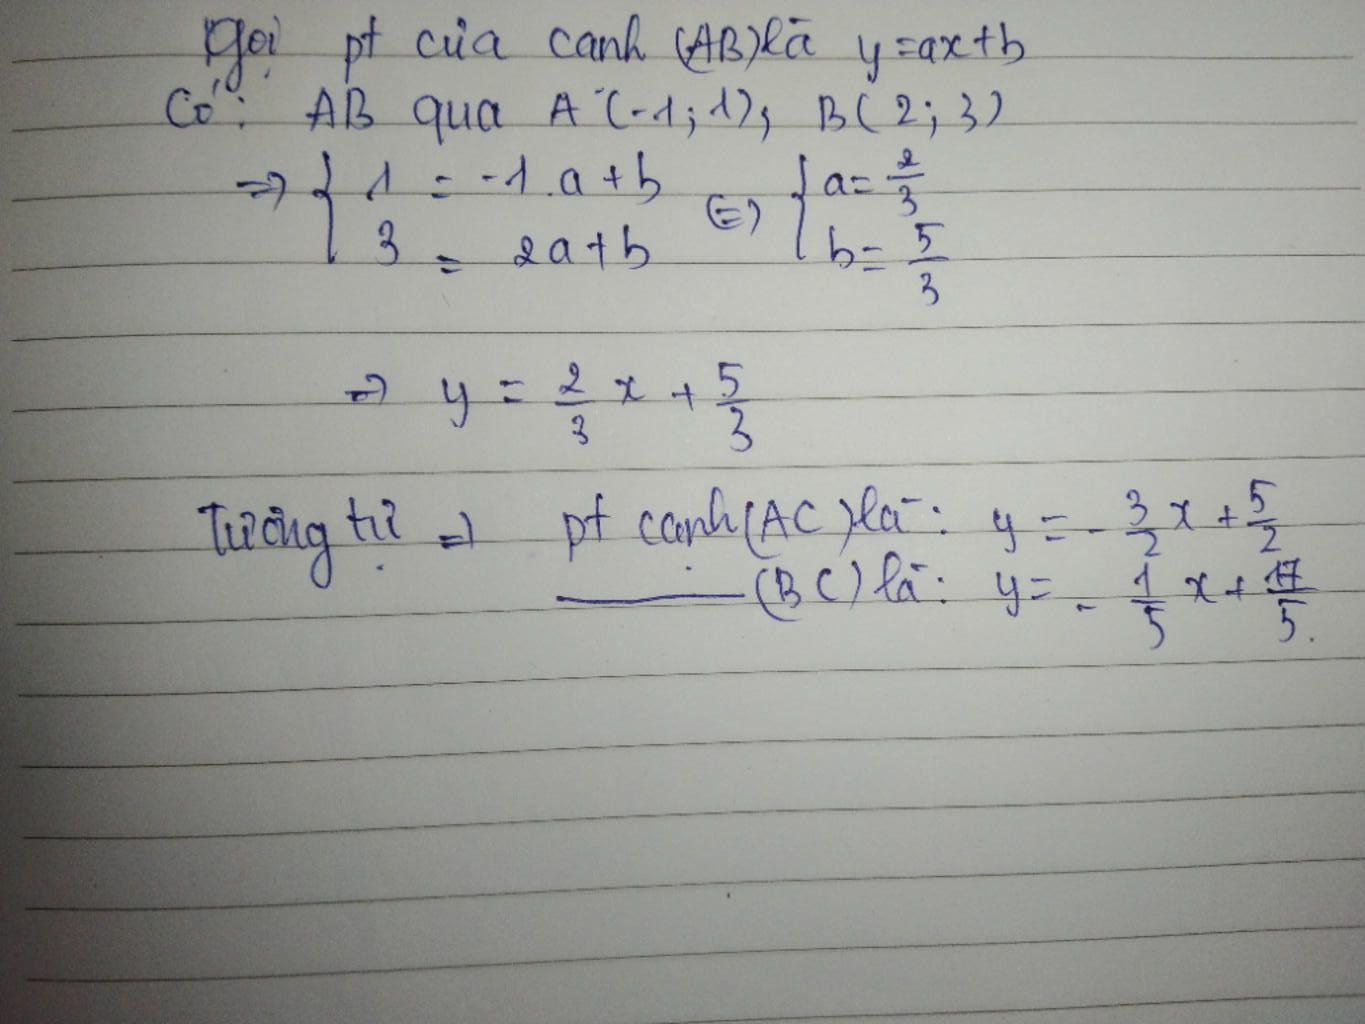 Gọi pt của cạnh (AB) là y=ax+b
Có: AB qua A (-1;1), B(2;3)
=> { 1 = -1.a+b <=> { a= 2/3
3 = 2a+b b= 5/3
=> y = 2/3 x + 5/3
Tương tự => pt cạnh (AC) là: y = - 3/2 x + 5/2
———— (BC) là: y= - 1/5 x + 17/5.